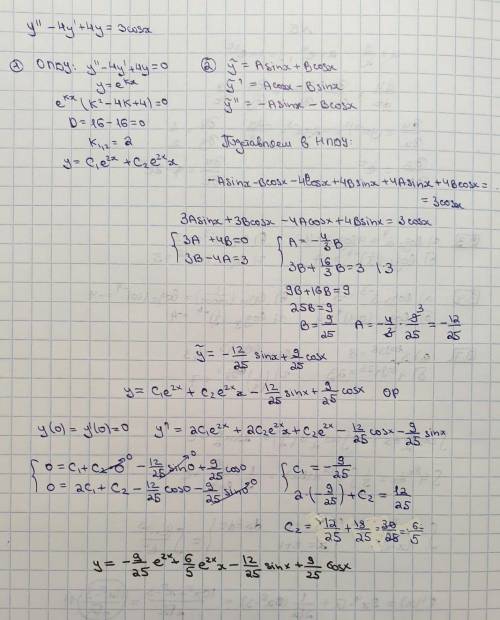 y'' - 4y' + 4y = 3cosx
① ОЛОУ: y'' - 4y' + 4y = 0
y = e^{kx}
e^{kx}(k² - 4k + 4) = 0
D = 16 - 16 = 0
k₁,₂ = 2
y = C₁e^{2x} + C₂e^{2x}x
② ỹ = Asinx + Bcosx
ỹ' = Acosx - Bsinx
ỹ'' = -Asinx - Bcosx
Подставляем в НЛОУ:
-Asinx - Bcosx - 4Acosx + 4Bsinx + 4Asinx + 4Bcosx =
= 3cosx
3Asinx + 3Bcosx - 4Acosx + 4Bsinx = 3cosx
{ 3A + 4B = 0
3B - 4A = 3
{ A = -4/3 B
3B + 16/3 B = 3 |·3
9B + 16B = 9
25B = 9
B = 9/25 A = -4/3 · 9/25 = -12/25
ỹ = -12/25 sinx + 9/25 cosx
y = C₁e^{2x} + C₂e^{2x}x - 12/25 sinx + 9/25 cosx ОР
y(0) = y'(0) = 0 y' = 2C₁e^{2x} + 2C₂e^{2x}x + C₂e^{2x} - 12/25 cosx - 9/25 sinx
{ 0 = C₁ + C₂·0 - 12/25 sin0 + 9/25 cos0
0 = 2C₁ + C₂ - 12/25 cos0 - 9/25 sin0
{ C₁ = -9/25
2·(-9/25) + C₂ = 12/25
C₂ = 12/25 + 18/25 = 30/25 = 6/5
y = -9/25 e^{2x} + 6/5 e^{2x}x - 12/25 sinx + 9/25 cosx